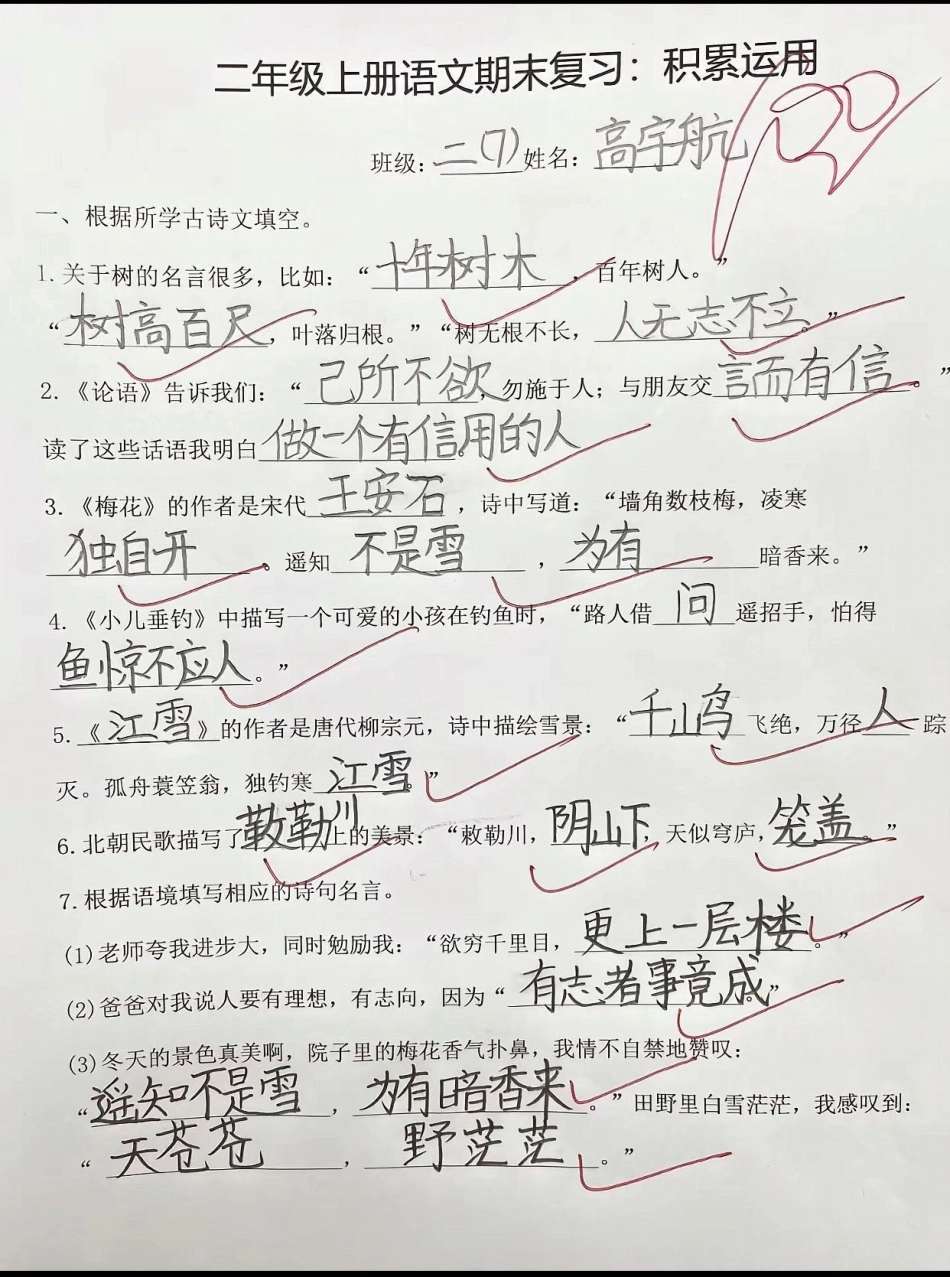 二年级上册语文期末复习：积累运用
班级：二(7) 姓名：高宇航 100
一、根据所学古诗文填空。
1.关于树的名言很多，比如：“十年树木，百年树人。”
“树高百尺，叶落归根。”“树无根不长，人无志不立。”
2.《论语》告诉我们：“己所不欲，勿施于人；与朋友交言而有信。”
读了这些话语我明白做一个有信用的人。
3.《梅花》的作者是宋代王安石，诗中写道：“墙角数枝梅，凌寒
独自开。遥知不是雪，为有暗香来。”
4.《小儿垂钓》中描写一个可爱的小孩在钓鱼时，“路人借问遥招手，怕得
鱼惊不应人。”
5.《江雪》的作者是唐代柳宗元，诗中描绘雪景：“千山鸟飞绝，万径人踪
灭。孤舟蓑笠翁，独钓寒江雪。”
6.北朝民歌描写了敕勒川上的美景：“敕勒川，阴山下，天似穹庐，笼盖。”
7.根据语境填写相应的诗句名言。
(1)老师夸我进步大，同时勉励我：“欲穷千里目，更上一层楼。”
(2)爸爸对我说人要有理想，有志向，因为“有志者事竟成。”
(3)冬天的景色真美啊，院子里的梅花香气扑鼻，我情不自禁地赞叹：
“遥知不是雪，为有暗香来。”田野里白雪茫茫，我感叹到：
“天苍苍，野茫茫。”